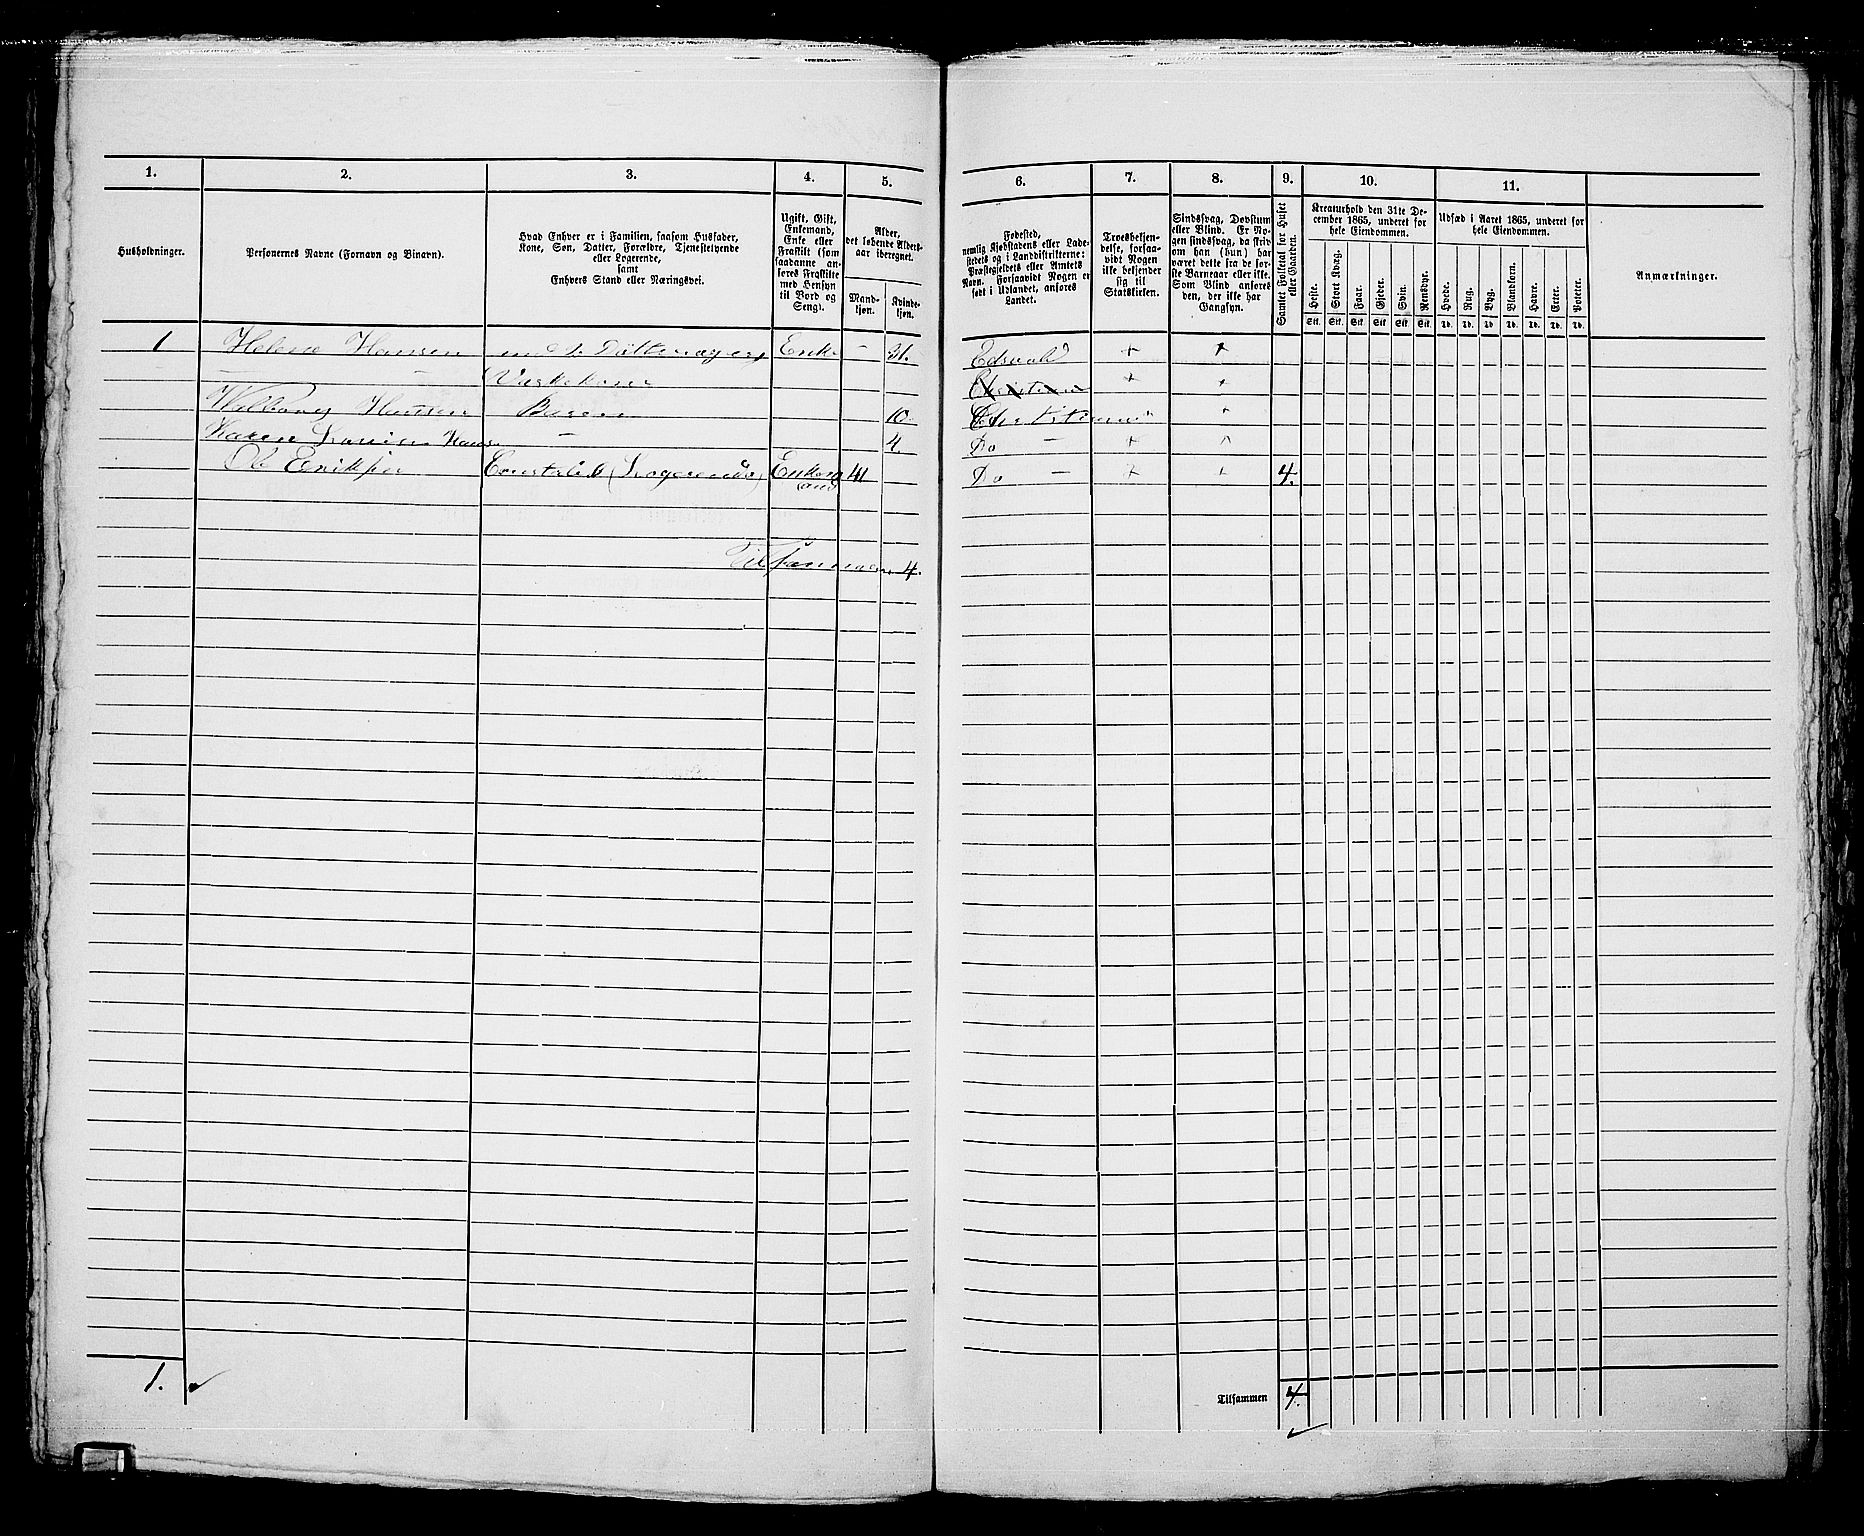 1. 2. 3. 4. 5. 6. 7. 8. 9. 10. 11.
Husholdninger.
Personernes Navne (Fornavn og Binavn).
Hvad Enhver er i Familien, saasom Husfader,
Kone, Søn, Datter, Forældre, Tjenestetyende
eller Logerende,
samt
Enhvers Stand eller Næringsvei.
Ugift, Gift,
Enkemand,
Enke eller
Fraskilt (som
saadanne an-
føres Fraskilte
med Hensyn
til Bord og
Seng).
Alder,
det løbende Alders-
aar iberegnet.
Mand-
kjøn.
Kvinde-
kjøn.
Fødested,
nemlig Kjøbstadens eller Lade-
stedets og i Landdistrikterne:
Præstegjeldets eller Amtets
Navn. Forsaavidt Nogen er
født i Udlandet, anføres
Landet.
Troesbekjen-
delse, forsaa-
vidt Nogen
ikke bekjender
sig til
Statskirken.
Sindssvag, Døvstum
eller Blind. Er No-
gen sindssvag, da skriv
om han (hun) har
været dette fra de før-
ste Barneaar eller ikke.
Som Blind anføres
den, der ikke har
Gangsyn.
Samlet Folketal for Huset
eller Gaarden.
Kreaturhold den 31te De-
cember 1865, underet for
hele Eiendommen.
Heste. Stort Kvæg. Faar. Gjeder. Svin. Rensdyr.
Stk. Stk. Stk. Stk. Stk. Stk.
Udsæd i Aaret 1865, underet for
hele Eiendommen.
Hvede. Rug. Byg. Blandkorn. Havre. Erter. Poteter.
Td. Td. Td. Td. Td. Td. Td.
Anmærkninger.
1 Helene Hansen Enke – 31. Edsvold + +
– – Vaskekone + +
Hansen Børn 10 Christiania +
Karen Hansen – 4. Do – + +
Ole Eriksen Constabel (Logerende) Enkem 41 Do – + + 4.
and
Tilsammen 4.
1.
Tilsammen 4.